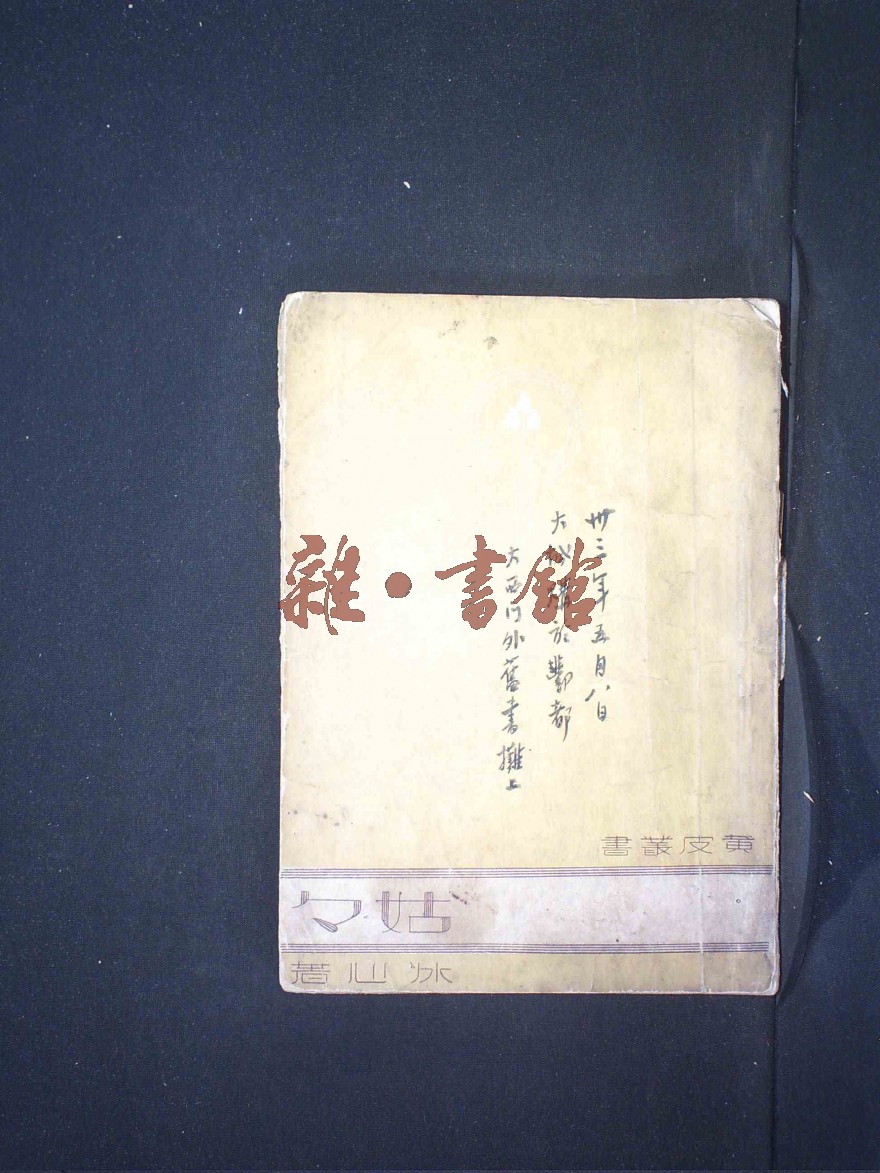 卅三年五月八日
大 於鄷都
大西门外舊書攤上
雜·書館
黄皮叢書
姑々
冰心著